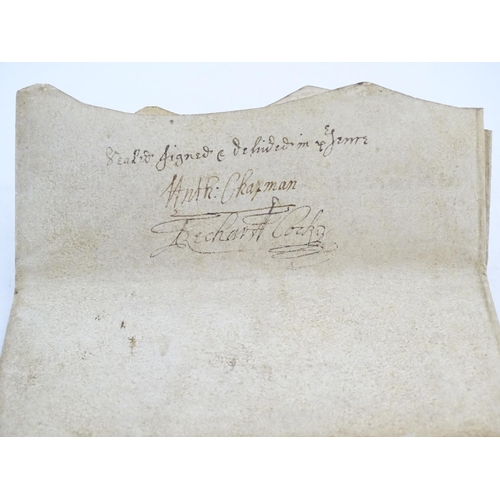 Sealed Signed & delivered in psence
Anth: Chapman
Richard Cock